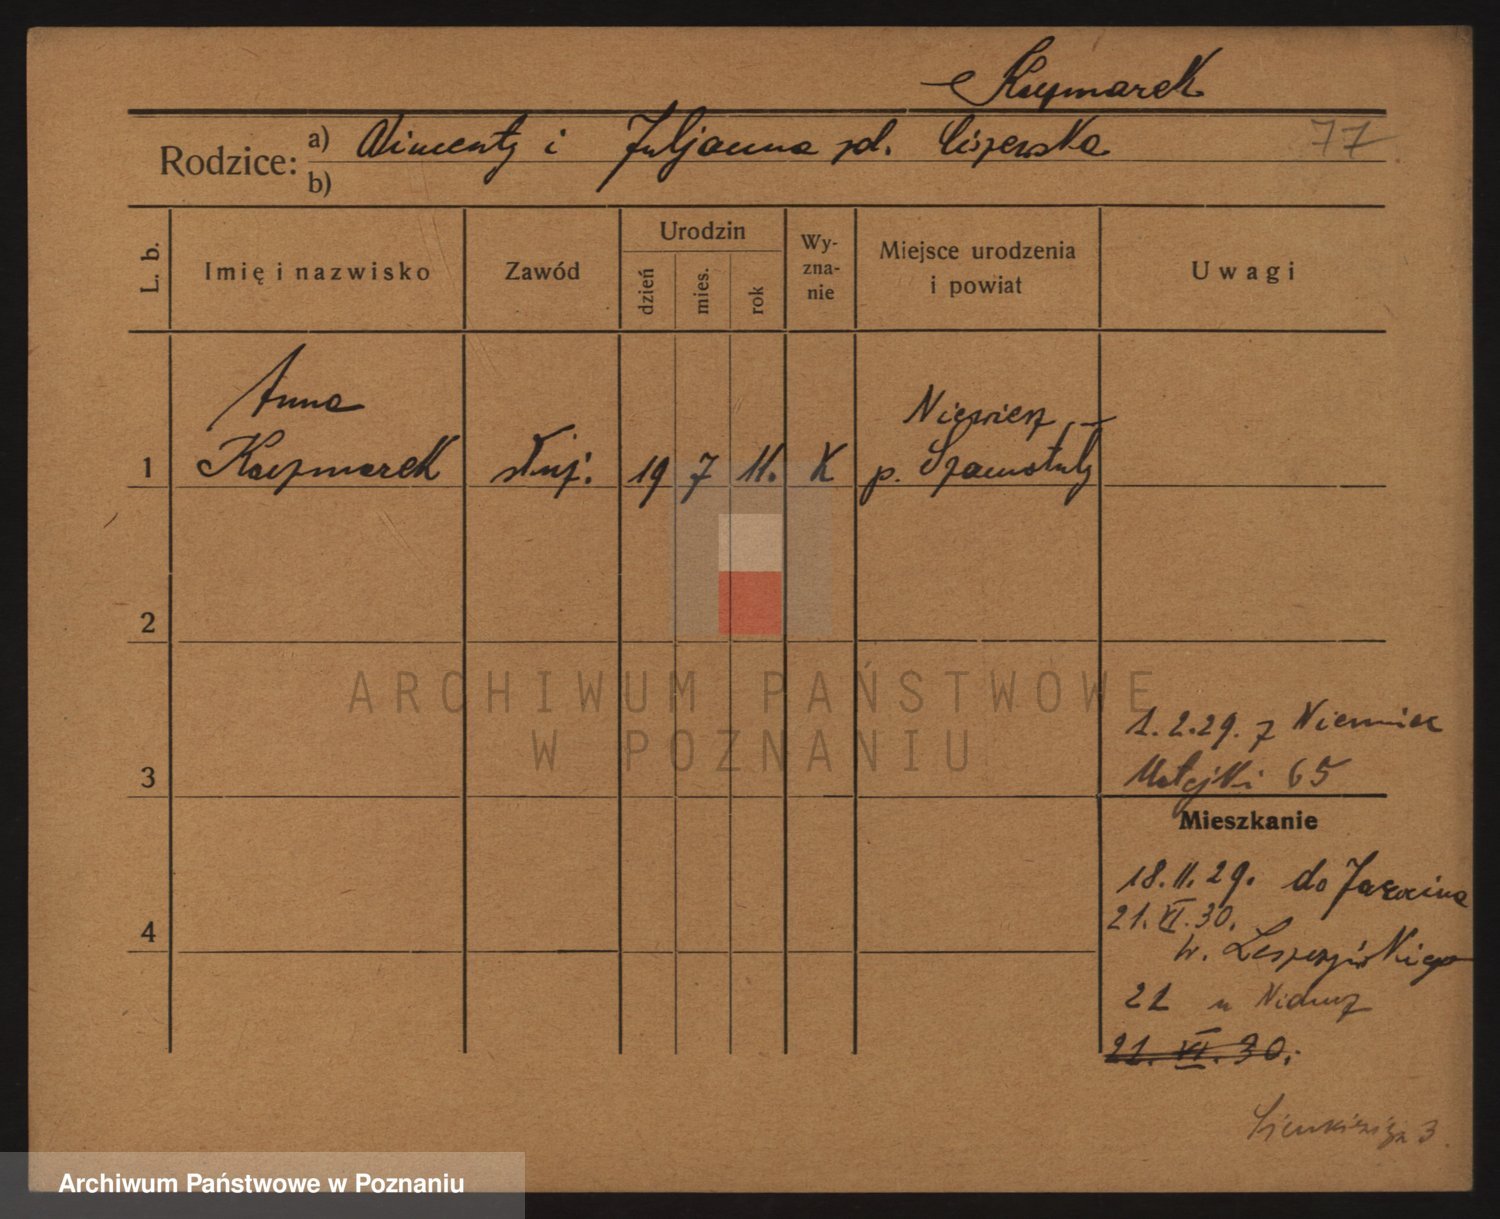 Kaczmarek
77
Rodzice: a) Wincenty i Juljanna zd. Ciszewska
b)
L. b. Imię i nazwisko Zawód Urodzin dzień mies. rok Wy-zna-nie Miejsce urodzenia i powiat Uwagi
Anna
1 Kaczmarek służ. 19 7 11. K Niewierz
p. Szamotuły
2
ARCHIWUM PAŃSTWOWE
W POZNANIU
1.2.29. z Niemiec
3 Matejki 65
Mieszkanie
18.11.29. do Jarocina
4 21.VI.30.
21 u
21. VI. 30.
3
Archiwum Państwowe w Poznaniu